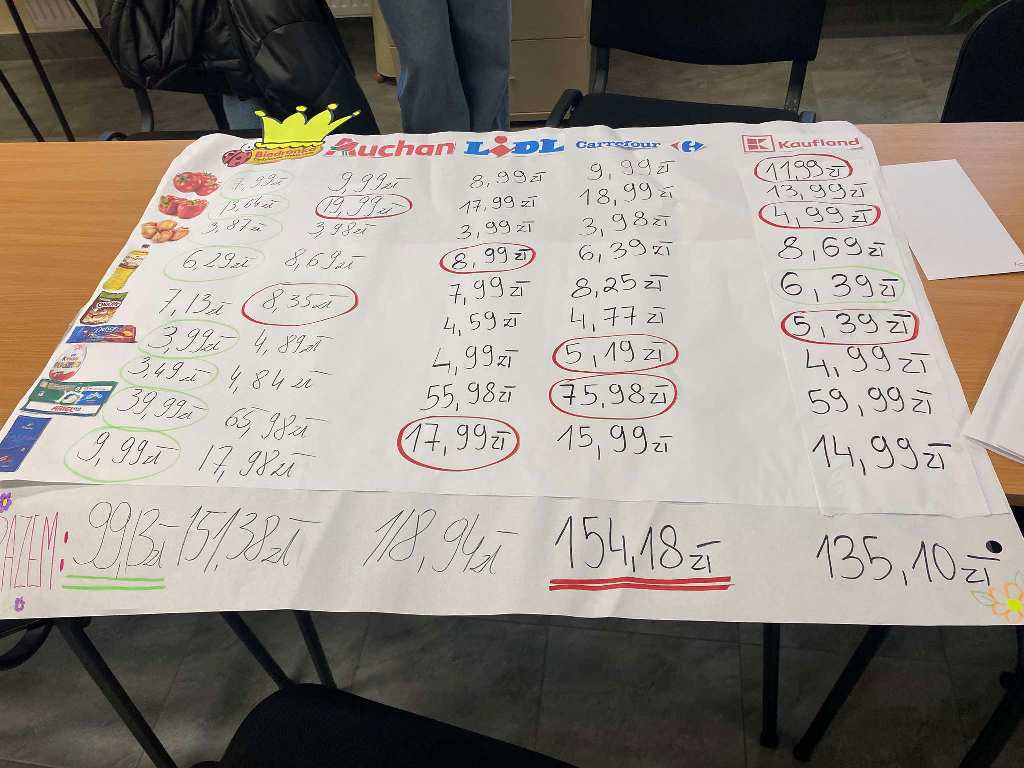 Biedronka Auchan LIDL Carrefour Kaufland
7,99zł 9,99zł 8,99zł 9,99zł 11,99zł
19,99zł 17,99zł 18,99zł 13,99zł
3,87zł 3,98zł 3,99zł 3,98zł 4,99zł
6,29zł 8,69zł 8,99zł 6,39zł 8,69zł
7,13zł 8,35zł 7,99zł 8,25zł 6,39zł
3,99zł 4,89zł 4,59zł 4,77zł 5,39zł
3,49zł 4,84zł 4,99zł 5,19zł 4,99zł
39,99zł 65,98zł 55,98zł 75,98zł 59,99zł
9,99zł 17,98zł 17,99zł 15,99zł 14,99zł
RAZEM: 99,13zł 151,38zł 118,94zł 154,18zł 135,10zł